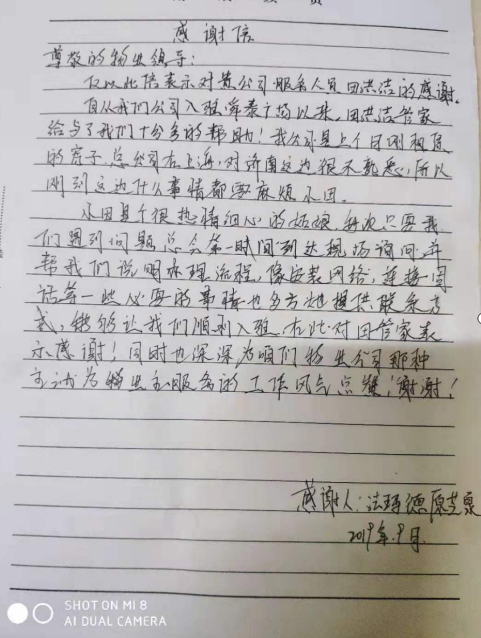 感谢信
尊敬的物业领导:
仅以此信表示对贵公司服务人员田洪洁的感谢。
自从我们公司入驻舜泰广场以来,田洪洁管家
给与了我们十分多的帮助!我公司是上个月刚租赁
的房子总公司在上海,对济南这边很不熟悉,所以
刚到这边什么事情都要麻烦小田。
小田是个很热情细心的姑娘,每次只要我
们遇到问题总会第一时间到达现场询问并
帮我们说明办理流程,像安装网络,连接
话等一些必要的事情也多方地提供联系方
式,能够让我们顺利入驻。在此对田管家表
示感谢!同时也深深为咱们物业公司那种
主动为物业主服务的工作风气点赞!谢谢!
感谢人:法玛德 原芝泉
2019年.9月.
SHOT ON MI 8
AI DUAL CAMERA